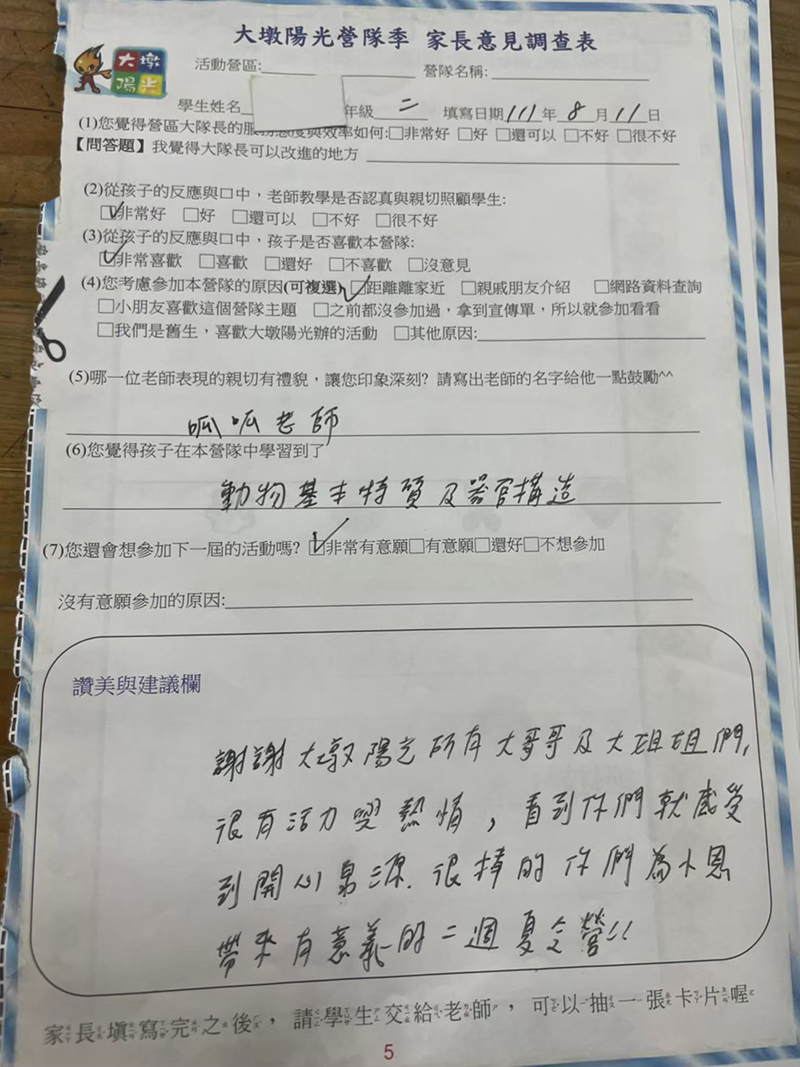 大墩陽光營隊季 家長意見調查表
大墩
陽光
活動營區: 營隊名稱:
學生姓名 年級 二 填寫日期 111 年 8 月 11 日
(1)您覺得營區大隊長的服務態度與效率如何:□非常好 □好 □還可以 □不好 □很不好
【問答題】我覺得大隊長可以改進的地方
(2)從孩子的反應與口中，老師教學是否認真與親切照顧學生:
☑非常好 □好 □還可以 □不好 □很不好
(3)從孩子的反應與口中，孩子是否喜歡本營隊:
☑非常喜歡 □喜歡 □還好 □不喜歡 □沒意見
(4)您考慮參加本營隊的原因(可複選) ☑距離離家近 □親戚朋友介紹 □網路資料查詢
□小朋友喜歡這個營隊主題 □之前都沒參加過，拿到宣傳單，所以就參加看看
□我們是舊生，喜歡大墩陽光辦的活動 □其他原因:
(5)哪一位老師表現的親切有禮貌，讓您印象深刻? 請寫出老師的名字給他一點鼓勵^^
呱呱老師
(6)您覺得孩子在本營隊中學習到了
動物基本特質及器官構造
(7)您還會想參加下一屆的活動嗎? ☑非常有意願□有意願□還好□不想參加
沒有意願參加的原因:
讚美與建議欄
謝謝大墩陽光所有大哥哥及大姐姐們,
很有活力與熱情，看到你們就感受
到開心泉源. 很棒的你們為小恩
帶來有意義的二週夏令營!!
家長填寫完之後，請學生交給老師，可以抽一張卡片喔
5